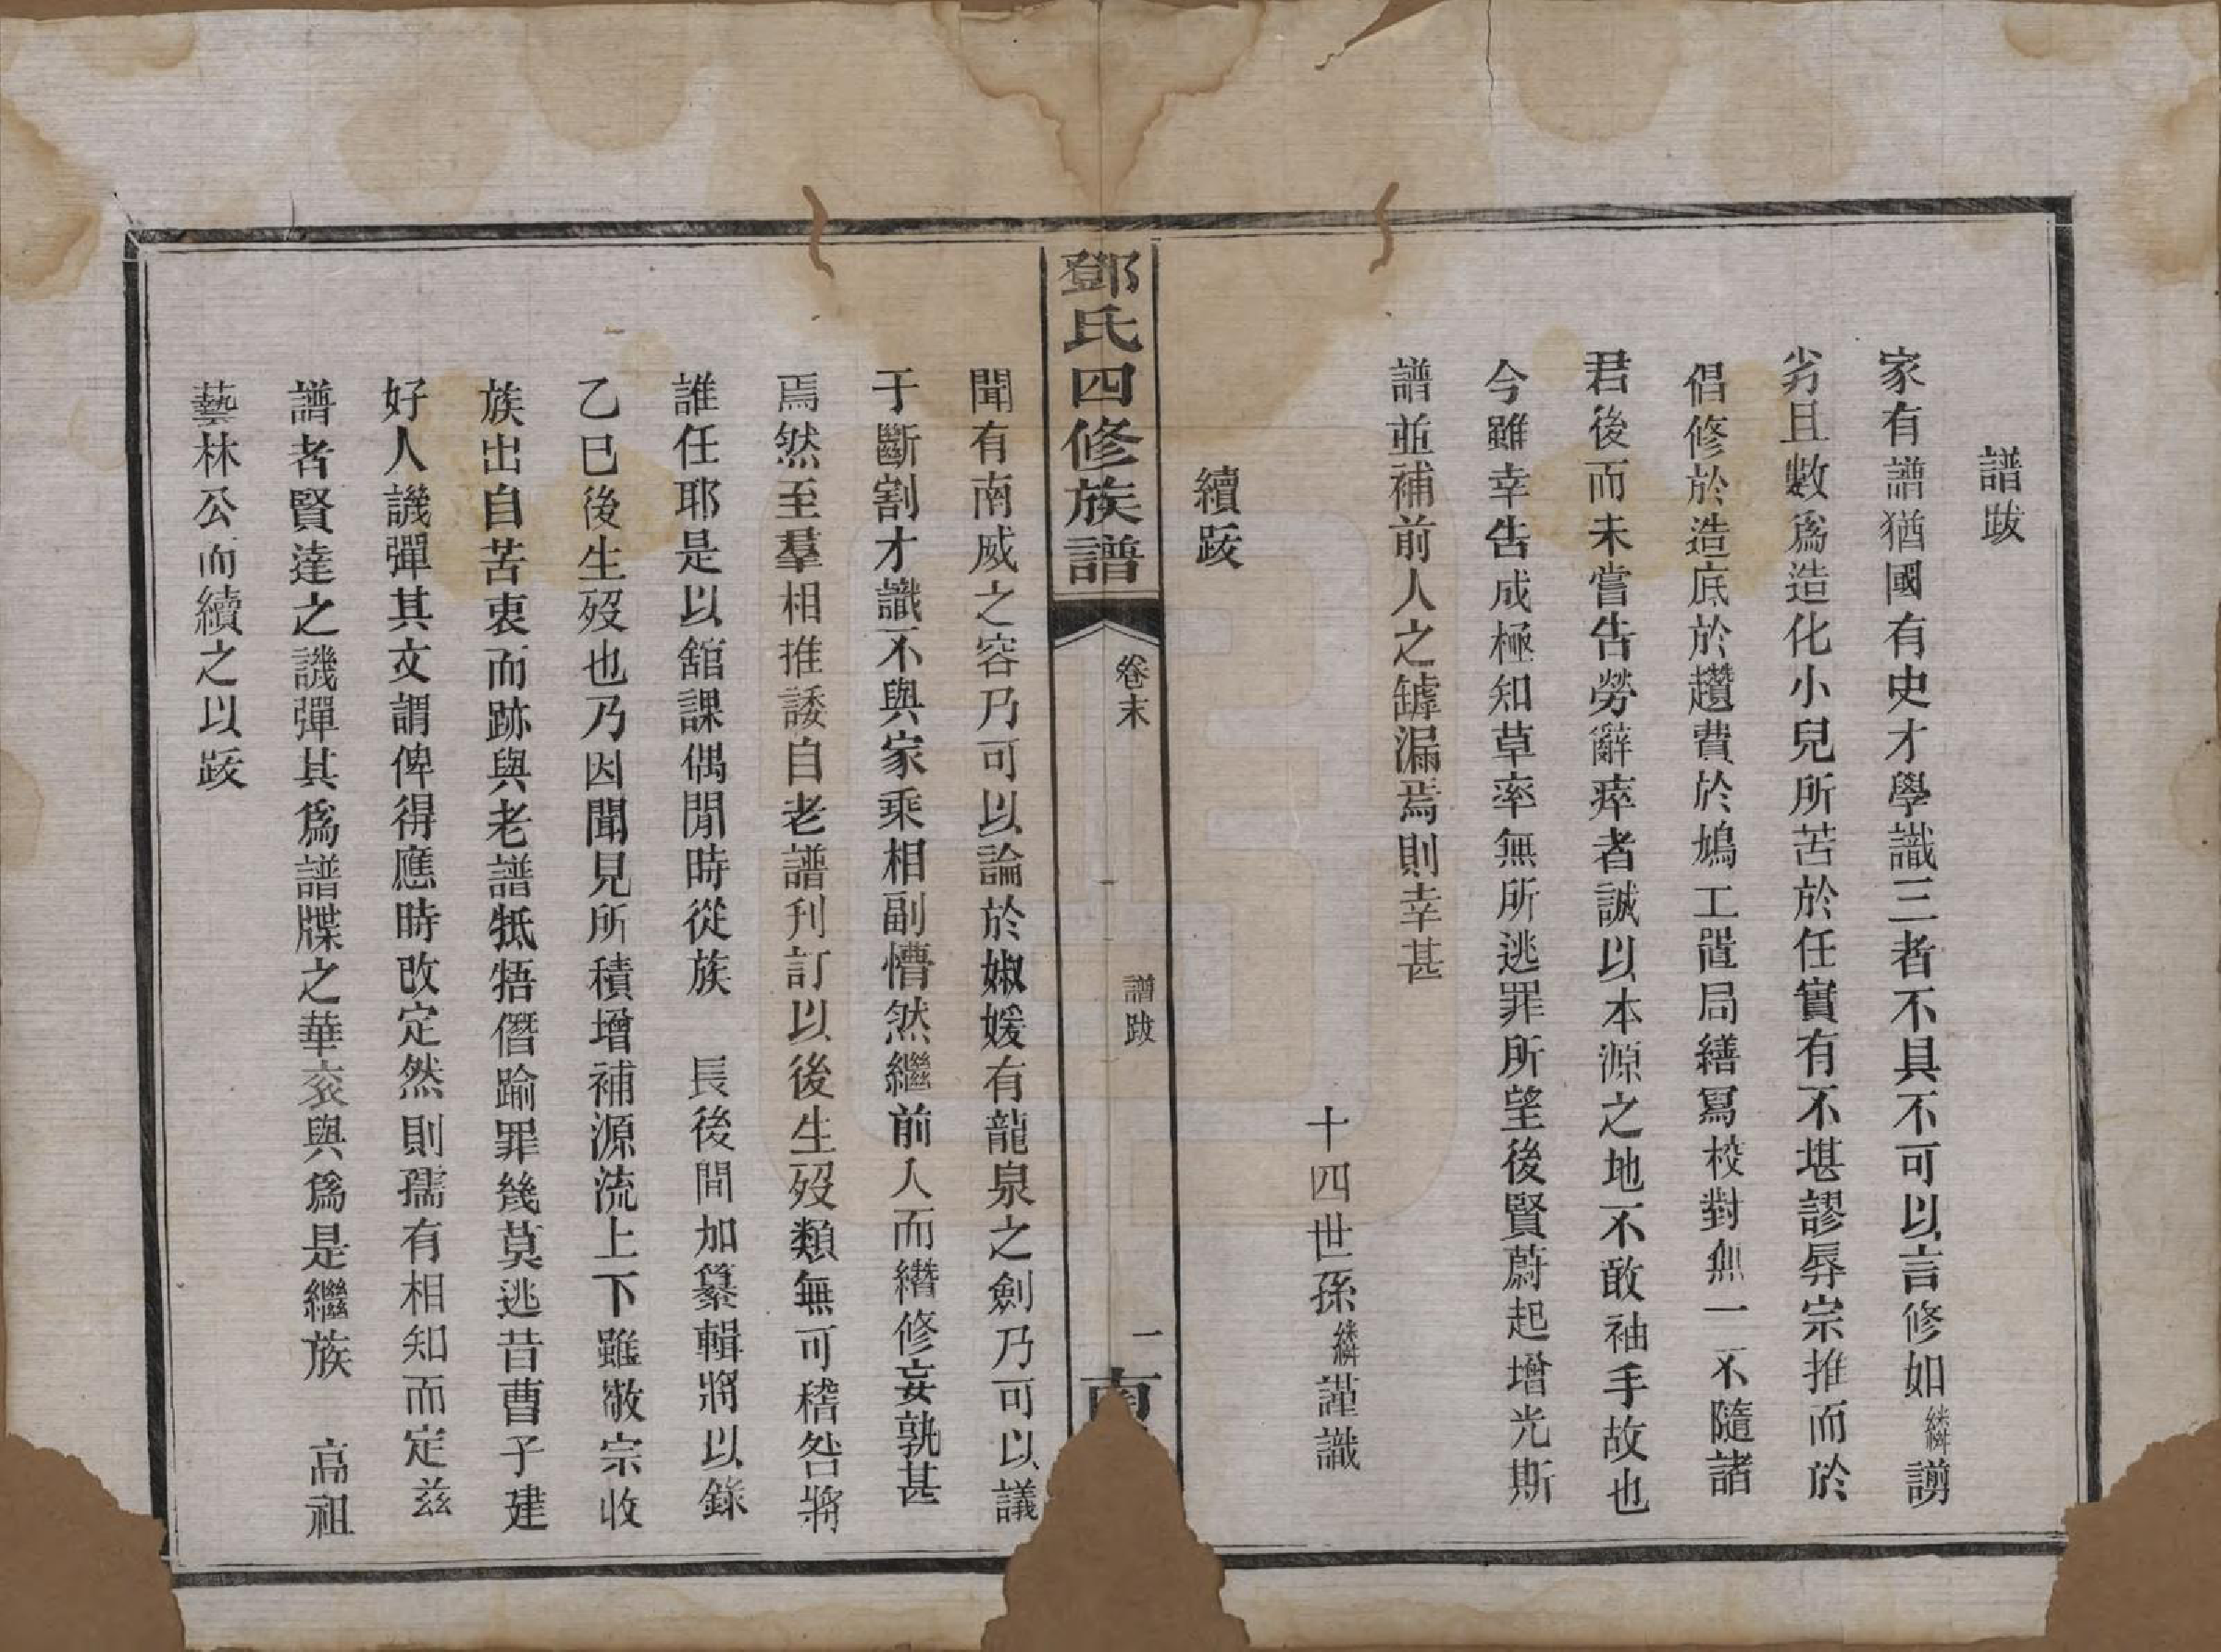 譜跋
家有譜猶國有史才學識三者不具不可以言修如繗謭
劣且數爲造化小兒所苦於任實有不堪謬辱宗推而於
倡修於造底於趲費於鳩工置局繕寫校對無一不隨諸
君後而未嘗告勞辭瘁者誠以本源之地不敢袖手故也
今雖幸告成極知草率無所逃罪所望後賢蔚起增光斯
譜並補前人之罅漏焉則幸甚
十四世孫繗謹識
續跋
鄧氏四修族譜
卷末
譜跋
一
聞有南威之容乃可以論於婌媛有龍泉之劍乃可以議
于斷割才識不與家乘相副懵然繼前人而纘修妄孰甚
焉然至羣相推諉自老譜刋訂以後生歿類無可稽咎將
誰任耶是以舘課偶閒時從族　長後間加纂輯將以錄
乙巳後生歿也乃因聞見所積增補源流上下雖敬宗收
族出自苦衷而跡與老譜牴牾僭踰罪幾莫逃昔曹子建
好人譏彈其文謂俾得應時改定然則孺有相知而定兹
譜者賢達之譏彈其爲譜牒之華衮與爲是繼族　高祖
藝林公而續之以跋